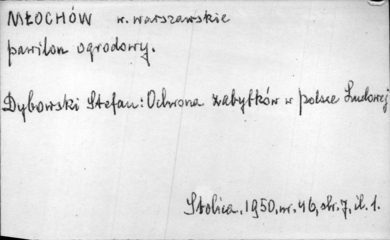 MŁOCHÓW w. warszawskie
pawilon ogrodowy.
Dybowski Stefan: Ochrona zabytków w polsce Ludowej
Stolica, 1950, nr. 46, str. 7, il. 1.